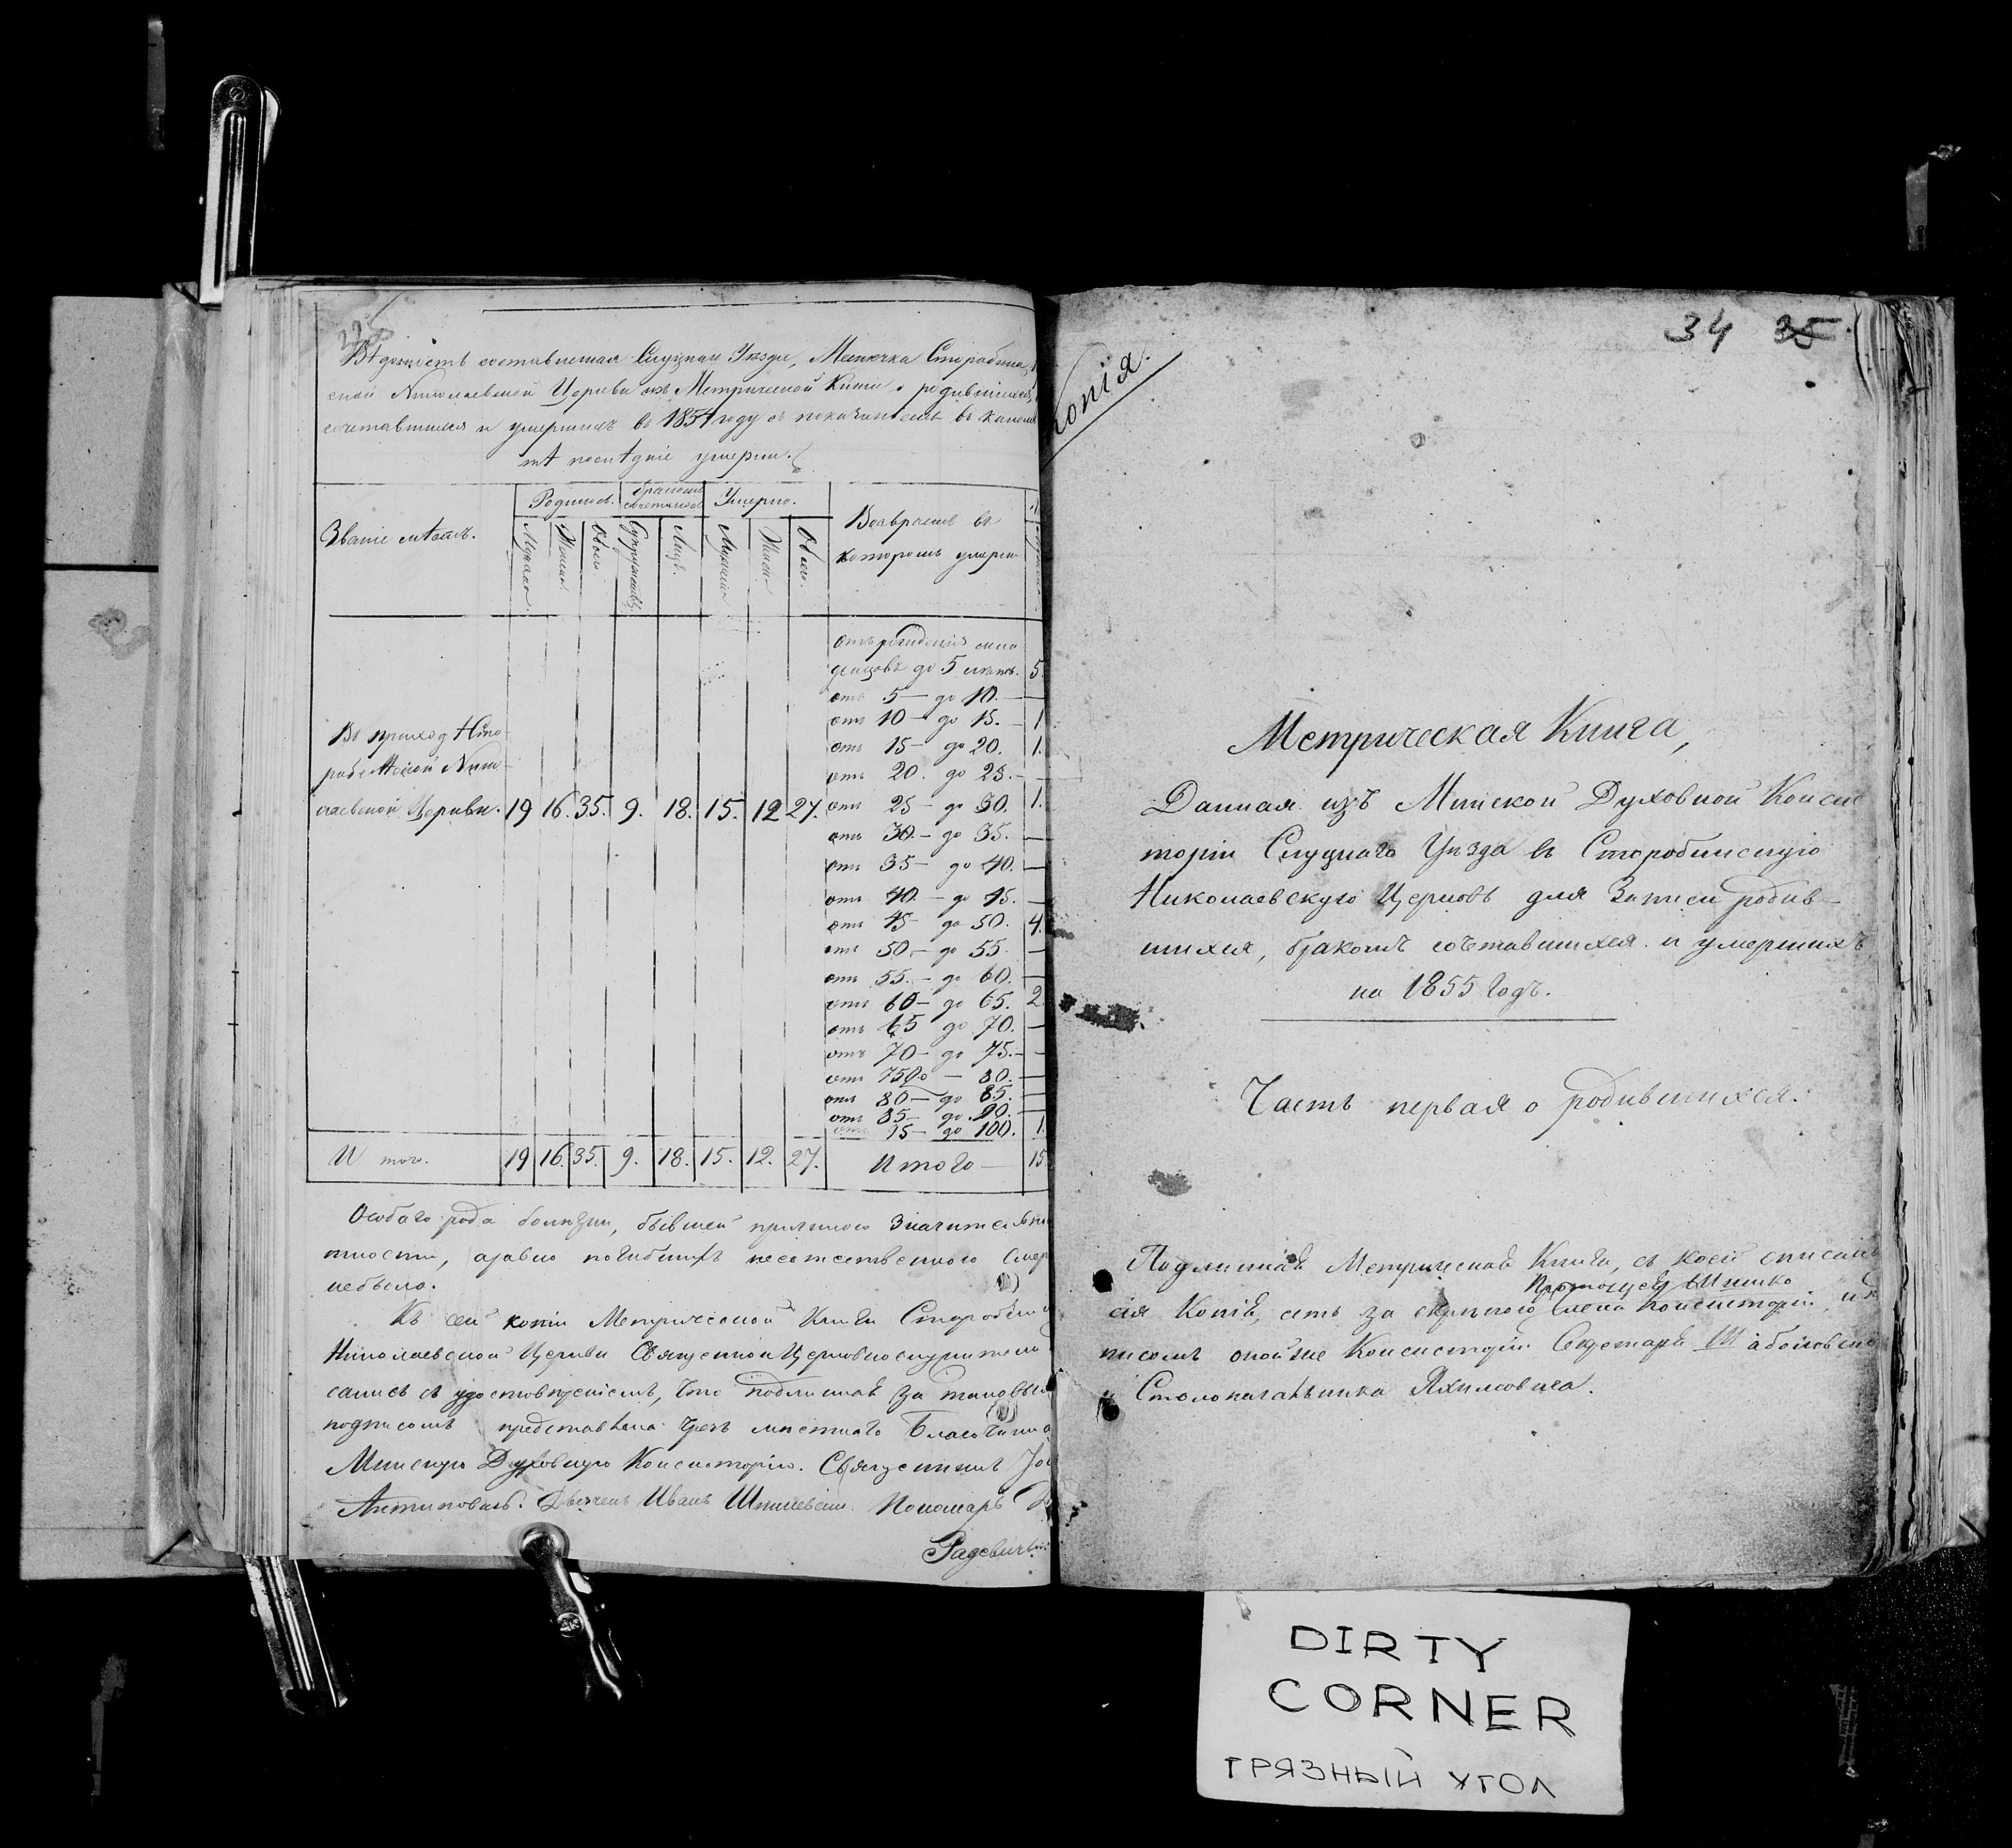 Вѣдомость составленная Слуцкаго Уѣзда, Мѣстечка Старобина,
ской Николаевской Церкви изъ Метрической Книги о родившихся,
сочетавшихся и умершихъ въ 1854 году съ показаніемъ въ какомъ
лѣтѣ послѣдніе умерли.
Званіе мѣстъ.
Родилось.
Бракомъ сочеталось
Умерло.
Возврастъ въ
которомъ умерли
Мужеска.
Женска.
Обоего.
Супружествъ.
Лицъ.
Мужеска
Женск.
Обоего.
отъ рожденія мла
денцовъ до 5 лѣтъ. 5
отъ 5 — до 10. —
отъ 10 — до 15. — 1
отъ 15 — до 20. 1.
отъ 20. до 25. —
отъ 25 — до 30. 1.
отъ 30. — до 35. —
отъ 35 — до 40. —
отъ 40. — до 45. —
отъ 45 — до 50. 4.
отъ 50. — до 55. —
отъ 55. — до 60. —
отъ 60 — до 65. 2.
отъ 65 до 70. —
отъ 70 — до 75. —
отъ 75 до — 80. —
отъ 80 — до 85. —
отъ 85 — до 90. —
отъ 95 — до 100. 1.
Въ приходѣ Сто
робинской Нико-
лаевской Церкви. 19 16. 35. 9. 18. 15. 12 27.
И того. 19 16. 35. 9. 18. 15. 12. 27. Итого — 15
Особаго рода болѣзни, бывшей причиною значительн
ности, а равно погибшихъ неестественною смер
небыло.
Къ сей копіи Метрической Книги Старобин
Николаевской Церкви Священно и Церковнослужители
сались съ удостовѣреніемъ, что подлинная за таковым
подписомъ представлена чрезъ мѣстнаго Благочинна
Минскую Духовную Консисторію. Священникъ
Антиповичъ. Дьячекъ Иванъ Шпилевскій. Пономарь
Радевичъ
Копія.
34 35.
Метрическая Книга,
Данная изъ Минской Духовной Консис
торіи Слуцкаго Уѣзда въ Старобинскую
Николаевскую Церковь для Записи родив-
шихся, бракомъ сочетавшихся и умершихъ
на 1855 Годъ.
Часть первая о родившихся.
Подлинная Метрическая Книга, съ коей списана
Протоіерея Шишко
сія Копія, есть за скрѣпою Члена Консисторіи
писомъ оной же Консисторіи Секретаря
и Столоначальника Яхимовича.
DIRTY
CORNER
ГРЯЗНЫЙ УГОЛ